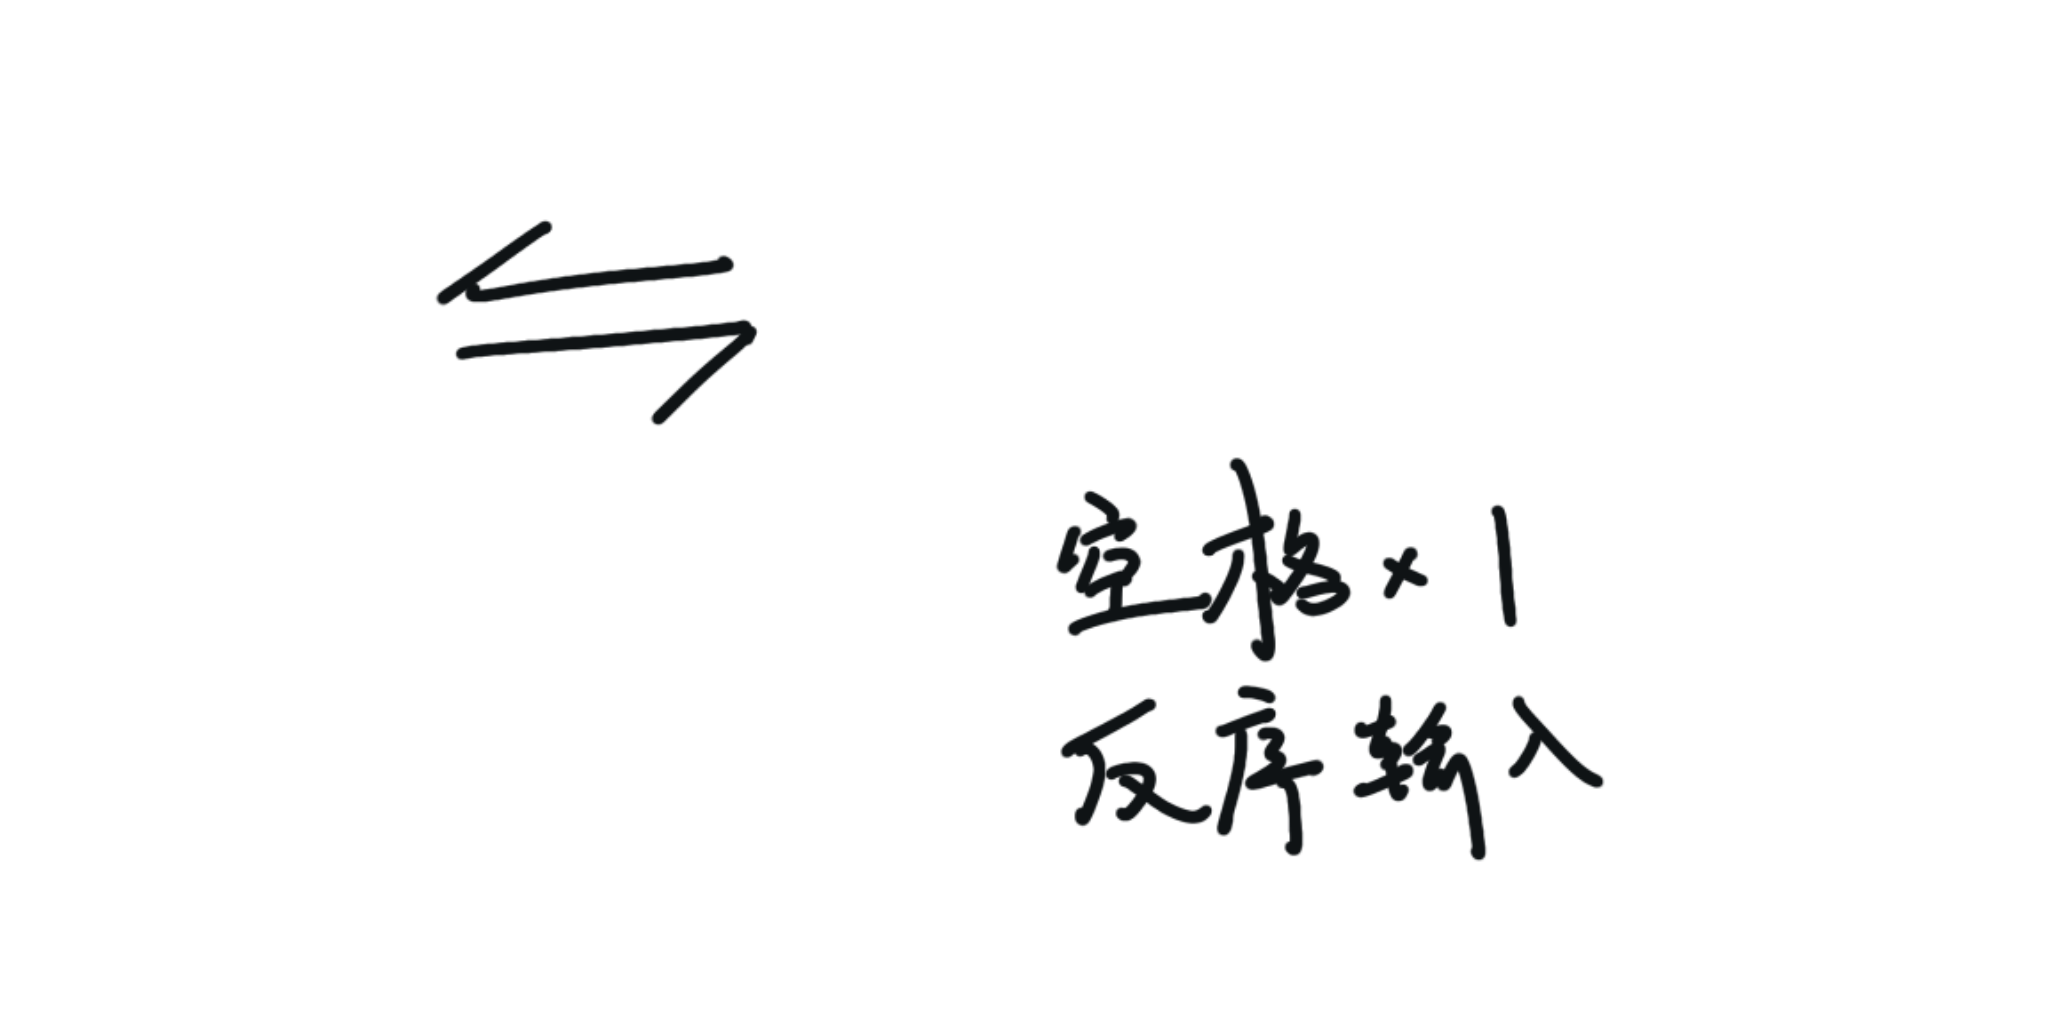 ⇋
空格×1
反序输入